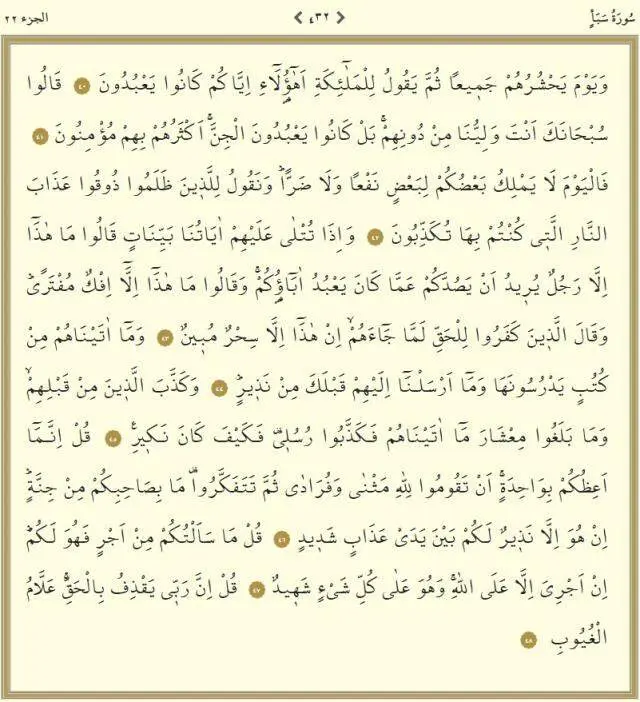 سُورَةُ سَبَأٍ ❮ ٤٣٢ ❯ الجزء ٢٢
وَيَوْمَ يَحْشُرُهُمْ جَم۪يعًا ثُمَّ يَقُولُ لِلْمَلٰٓئِكَةِ اَهٰٓؤُ۬لَٓاءِ اِيَّاكُمْ كَانُوا يَعْبُدُونَ ﴿٤٠﴾ قَالُوا
سُبْحَانَكَ اَنْتَ وَلِيُّنَا مِنْ دُونِهِمْۚ بَلْ كَانُوا يَعْبُدُونَ الْجِنَّۚ اَكْثَرُهُمْ بِهِمْ مُؤْمِنُونَ ﴿٤١﴾
فَالْيَوْمَ لَا يَمْلِكُ بَعْضُكُمْ لِبَعْضٍ نَفْعًا وَلَا ضَرًّاۜ وَنَقُولُ لِلَّذ۪ينَ ظَلَمُوا ذُوقُوا عَذَابَ
النَّارِ الَّت۪ي كُنْتُمْ بِهَا تُكَذِّبُونَ ﴿٤٢﴾ وَاِذَا تُتْلٰى عَلَيْهِمْ اٰيَاتُنَا بَيِّنَاتٍ قَالُوا مَا هٰذَٓا
اِلَّا رَجُلٌ يُر۪يدُ اَنْ يَصُدَّكُمْ عَمَّا كَانَ يَعْبُدُ اٰبَٓاؤُ۬كُمْۚ وَقَالُوا مَا هٰذَٓا اِلَّٓا اِفْكٌ مُفْتَرًىۜ
وَقَالَ الَّذ۪ينَ كَفَرُوا لِلْحَقِّ لَمَّا جَٓاءَهُمْۙ اِنْ هٰذَٓا اِلَّا سِحْرٌ مُب۪ينٌ ﴿٤٣﴾ وَمَٓا اٰتَيْنَاهُمْ مِنْ
كُتُبٍ يَدْرُسُونَهَا وَمَٓا اَرْسَلْنَٓا اِلَيْهِمْ قَبْلَكَ مِنْ نَذ۪يرٍۜ ﴿٤٤﴾ وَكَذَّبَ الَّذ۪ينَ مِنْ قَبْلِهِمْۙ
وَمَا بَلَغُوا مِعْشَارَ مَٓا اٰتَيْنَاهُمْ فَكَذَّبُوا رُسُل۪ي۠ فَكَيْفَ كَانَ نَك۪يرِ۟ ﴿٤٥﴾ قُلْ اِنَّمَٓا
اَعِظُكُمْ بِوَاحِدَةٍۚ اَنْ تَقُومُوا لِلّٰهِ مَثْنٰى وَفُرَادٰى ثُمَّ تَتَفَكَّرُوا۠ مَا بِصَاحِبِكُمْ مِنْ جِنَّةٍۜ
اِنْ هُوَ اِلَّا نَذ۪يرٌ لَكُمْ بَيْنَ يَدَيْ عَذَابٍ شَد۪يدٍ ﴿٤٦﴾ قُلْ مَا سَاَلْتُكُمْ مِنْ اَجْرٍ فَهُوَ لَكُمْۜ
اِنْ اَجْرِيَ اِلَّا عَلَى اللّٰهِۚ وَهُوَ عَلٰى كُلِّ شَيْءٍ شَه۪يدٌ ﴿٤٧﴾ قُلْ اِنَّ رَبّ۪ي يَقْذِفُ بِالْحَقِّۚ عَلَّامُ
الْغُيُوبِ ﴿٤٨﴾